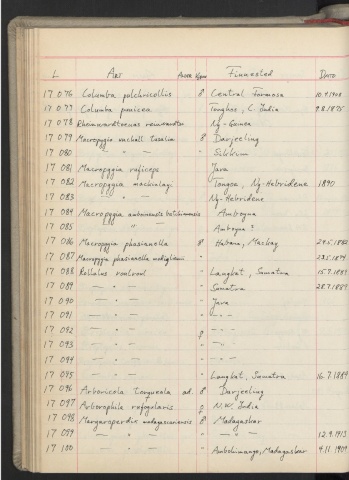 L Art Alder Kjønn Finnested Dato
17 076 Columba pulchricollis ♂ Central Formosa 10.9.1908
17 077 Columba punicea Tonghoo, C. India 9.8.1875
17 078 Rheinwardtoenas reinwardtsi Ny-Guinea
17 079 Macropygia unchall tusalia ♂ Darjeeling
17 080 — " — Sikkim
17 081 Macropygia ruficeps Java
17 082 Macropygia mackinlayi Tongoa, Ny-Hebridene 1890
17 083 — " — Ny-Hebridene
17 084 Macropygia amboinensis Amboyna
17 085 " — Amboyna ?
17 086 Macropygia phasianella ♂ Habana, Mackay 29.5.1882
17 087 Macropygia phasianella modiglianii " 23.5.1874
17 088 Rollulus roulroul " Langkat, Sumatra 15.7.1889
17 089 — " — " Sumatra 28.7.1889
17 090 — " — " Java
17 091 — " — " — " —
17 092 — " — ♀ — " —
17 093 — " — " — " —
17 094 — " — " — " —
17 095 — " — " Langkat, Sumatra 16.7.1889
17 096 Arboricola torqueola ad. ♂ Darjeeling
17 097 Arborophila rufogularis ♀ N.W. India
17 098 Margaroperdix madagascariensis ♂ Madagaskar
17 099 — " — " — " — 12.9.1913
17 100 — " — " Ambohimanga, Madagaskar 4.11.1909